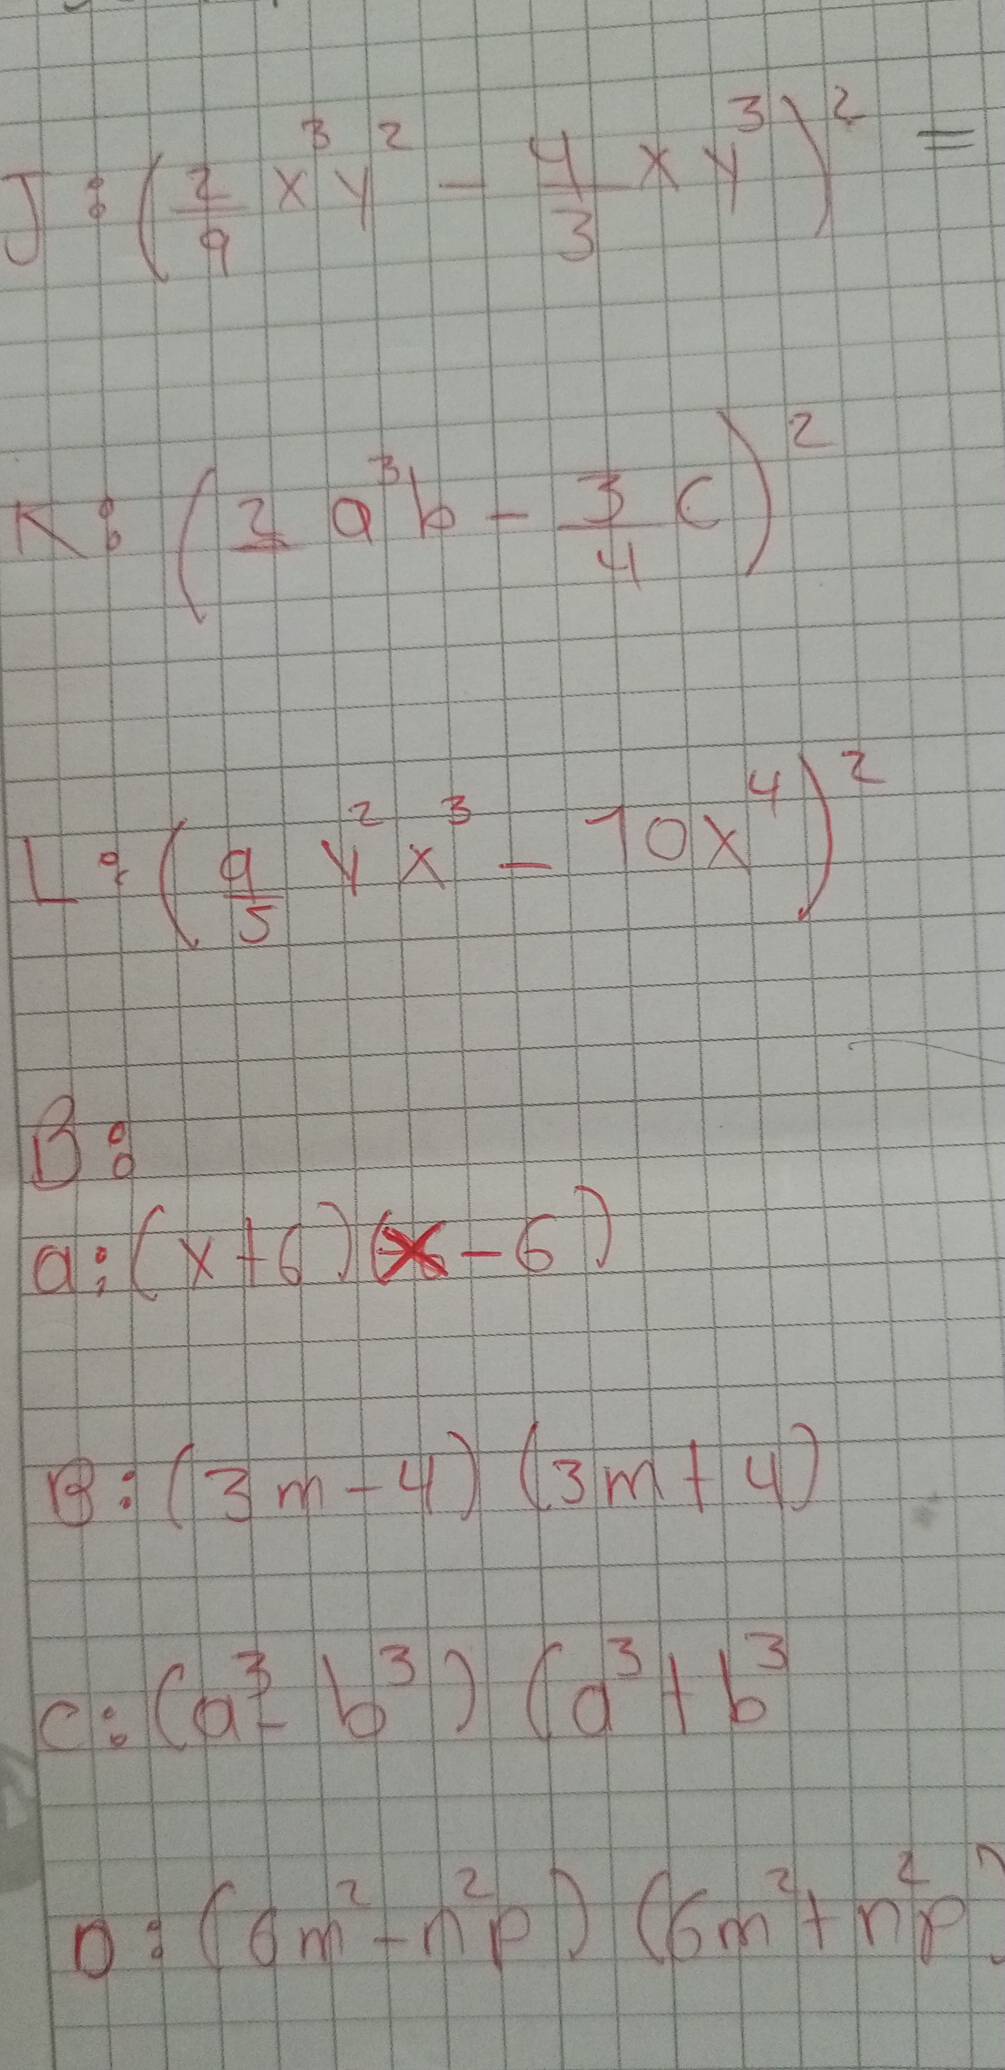 J: (2/9 x³y² - 4/3 xy³)² =
K: (2 a³b - 3/4 c)²
L: (9/5 y²x³ - 10x⁴)²
B:
a: (x+6)(x-6)
B: (3m-4)(3m+4)
C: (a³-b³)(a³+b³
D: (6m²-n²p)(6m²+n²p)